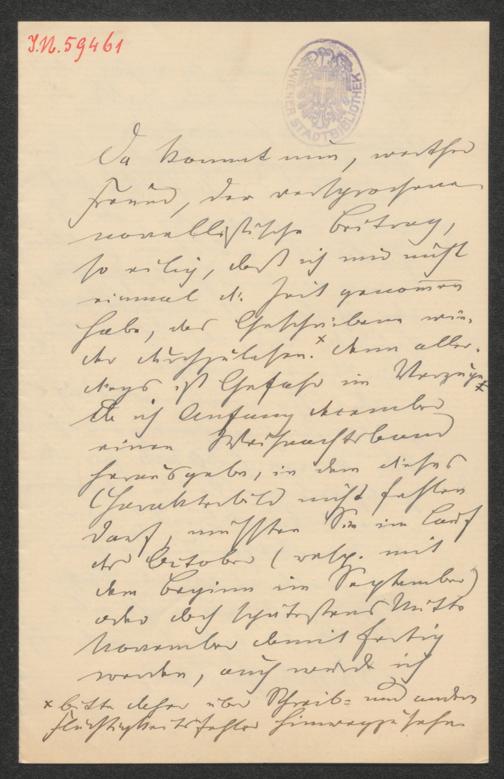 J.N. 59461
WIENER STADTBIBLIOTHEK
Da kommt nun, werther
Freund, der versprochene
novellistische Beitrag,
so eilig, daß ich mir nicht
einmal die Zeit genommen
habe, das Geschriebene wie-
der durchzulesen.x Denn aller-
dings ist Gefahr im Verzuge
Da ich Anfang December
einen Weihnachtsband
herausgebe, in dem dieses
Charakterbild nicht fehlen
darf, müssten Sie im Lauf
des October (resp. mit
dem Beginn im September)
oder doch spätestens Mitte
November damit fertig
werden, auch würde ich
x bitte daher über Schreib- und andere
Flüchtigkeitsfehler hinwegzusehen